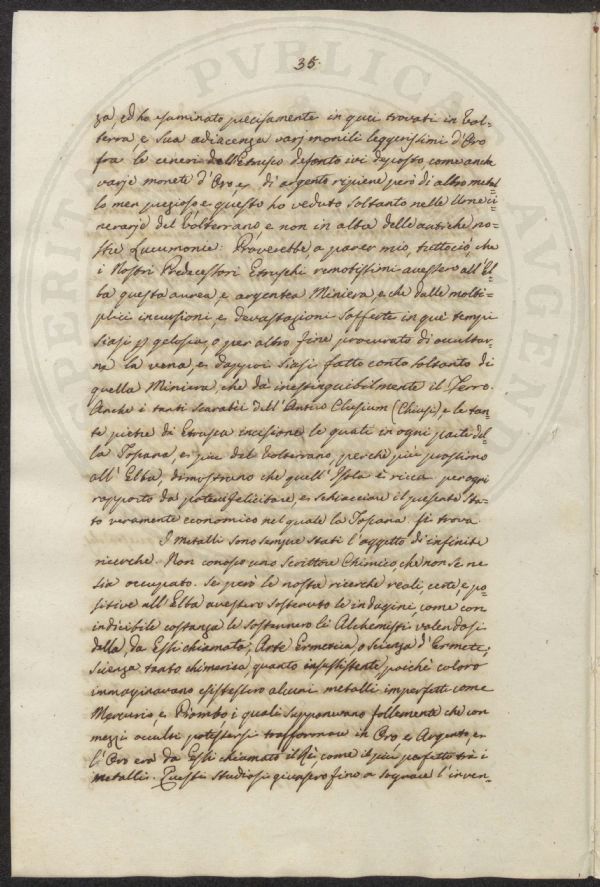 35.
za, ed ho esaminato precisamente in quei trovati in Vol=
terra, e sua adiacenza varj monili leggerissimi d'Oro
fra le ceneri dell'Etrusco defonto ivi deposto come anche
varje monete d'Oro e, di argento ripiene però di altro metal=
lo men prezioso e queste ho veduto soltanto nelle Urne ci=
nerarje del Volterrano, e non in altra delle antiche no=
stre Lucumonie: Proverebbe a parer mio, tuttociò, che
i Nostri Predecessori Etruschi remotissimi avessero all'El=
ba questa aurea, e argentea Miniera, e che dalle molti=
plici incursioni, e devastazioni sofferte in que' tempi
siasi p gelosia, o per altro fine procurato di occultar=
ne la vena, e, dappoi siasi fatto conto soltanto di
quella Miniera, che dà inestinguibilmente il Ferro.
Anche i tanti Scarabei dell'Antico Clusium (Chiusi) e le tan=
te pietre di Etrusca incisione le quali in ogni parte del=
la Toscana, e, piu del Volterrano, perchè più prossimo
all'Elba, dimostrano che quell'Isola è ricca per ogni
rapporto da poter felicitare, e, schiacciare il presente Sta=
to veramente economico nel quale la Toscana si trova.
I metalli sono sempre stati l'oggetto di infinite
ricerche. Non conosco uno Scrittore Chimico, che non se ne
sia occupato. Se però le nostre ricerche reali, certe, e po=
sitive all'Elba avessero sostenuto le indagini, come con
indicibile costanza le sostennero li Alchemisti valendosi
della, da Essi chiamata, Arte Ermetica, o Scienza d'Ermete;
Scienza tanto chimerica, quanto insussistente, poichè coloro
immaginavano esistessero alcuni metalli imperfetti come
Mercurio, e Piombo, i quali supponevano follemente che con
mezzi occulti potessersi trasformare in Oro e Argento, e,
l'Oro era da Essi chiamato il Rè, come il piu perfetto tra i
metalli. Questi Studiosi giunsero fino a sognare l'inven=